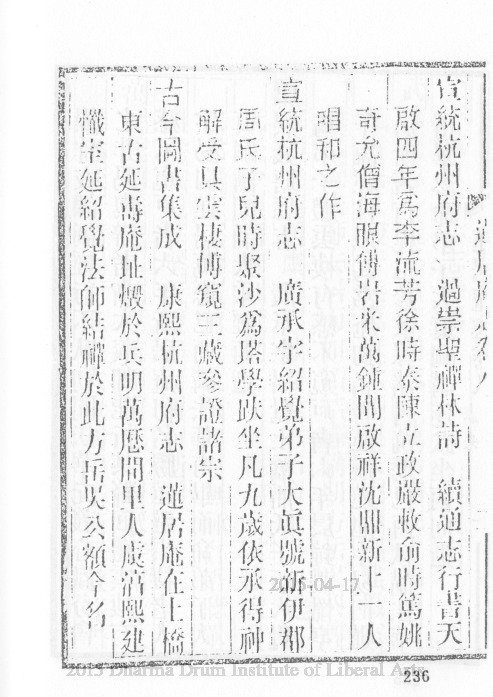 宣統杭州府志 過崇聖禪林詩 續通志行書天
啟四年為李流芳徐時泰陳立政嚴敕俞時篤姚
奇允僧海眼傅岩宋萬鍾聞啟祥沈鼎新十一人
唱和之作
宣統杭州府志 廣承字紹覺弟子大眞號新伊郡
周氏子兒時聚沙爲塔學趺坐凡九歲依承得神
解受具雲棲博窺三藏參證諸宗
古今圖書集成 康熙杭州府志 蓮居庵在土橋
東古延壽庵址燬於兵明萬曆間里人虞淳熙建
懺室延紹覺法師結禪於此方岳吳公額今名
2015-04-17
2013 Dharma Drum Institute of Liberal Arts
236